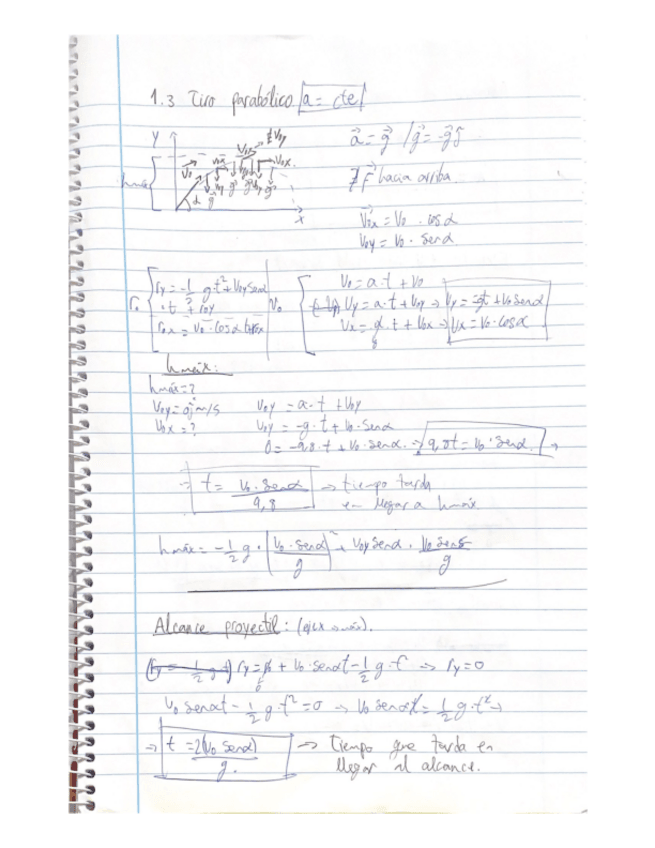 1.3 Tiro parabólico |a = cte|
Y
hmáx
α
x
a⃗ = g⃗ / g⃗ = -gĵ
∄ F⃗ hacia arriba.
V⃗ox = Vo · cosα
Voy = Vo · senα
ry = -1/2 g·t² + Voy senα
·t + roy
rox = Vo · cosα t + rox
Vo = a·t + Vo
Vy = a·t + Voy → Vy = -gt + Vo senα
Vx = a·t + Vox → Vx = Vo·cosα
hmáx:
hmáx = ?
Voy = 0j m/s
Vox = ?
Voy = a·t + Voy
Voy = -g·t + Vo·senα
0 = -9,8·t + Vo·senα. → 9,8t = Vo·senα →
→ t = Vo·senα / 9,8 → tiempo tarda
en llegar a hmáx
hmáx = -1/2 g · [Vo·senα / g]² + Voy senα · Vo senα / g
Alcance proyectil: (eje x → máx).
ry = ro + Vo·senαt - 1/2 g·t² → ry = 0
Vo senαt - 1/2 g·t² = 0 → Vo senαt = 1/2 g·t² →
→ t = 2(Vo senα) / g. → Tiempo que tarda en
llegar al alcance.